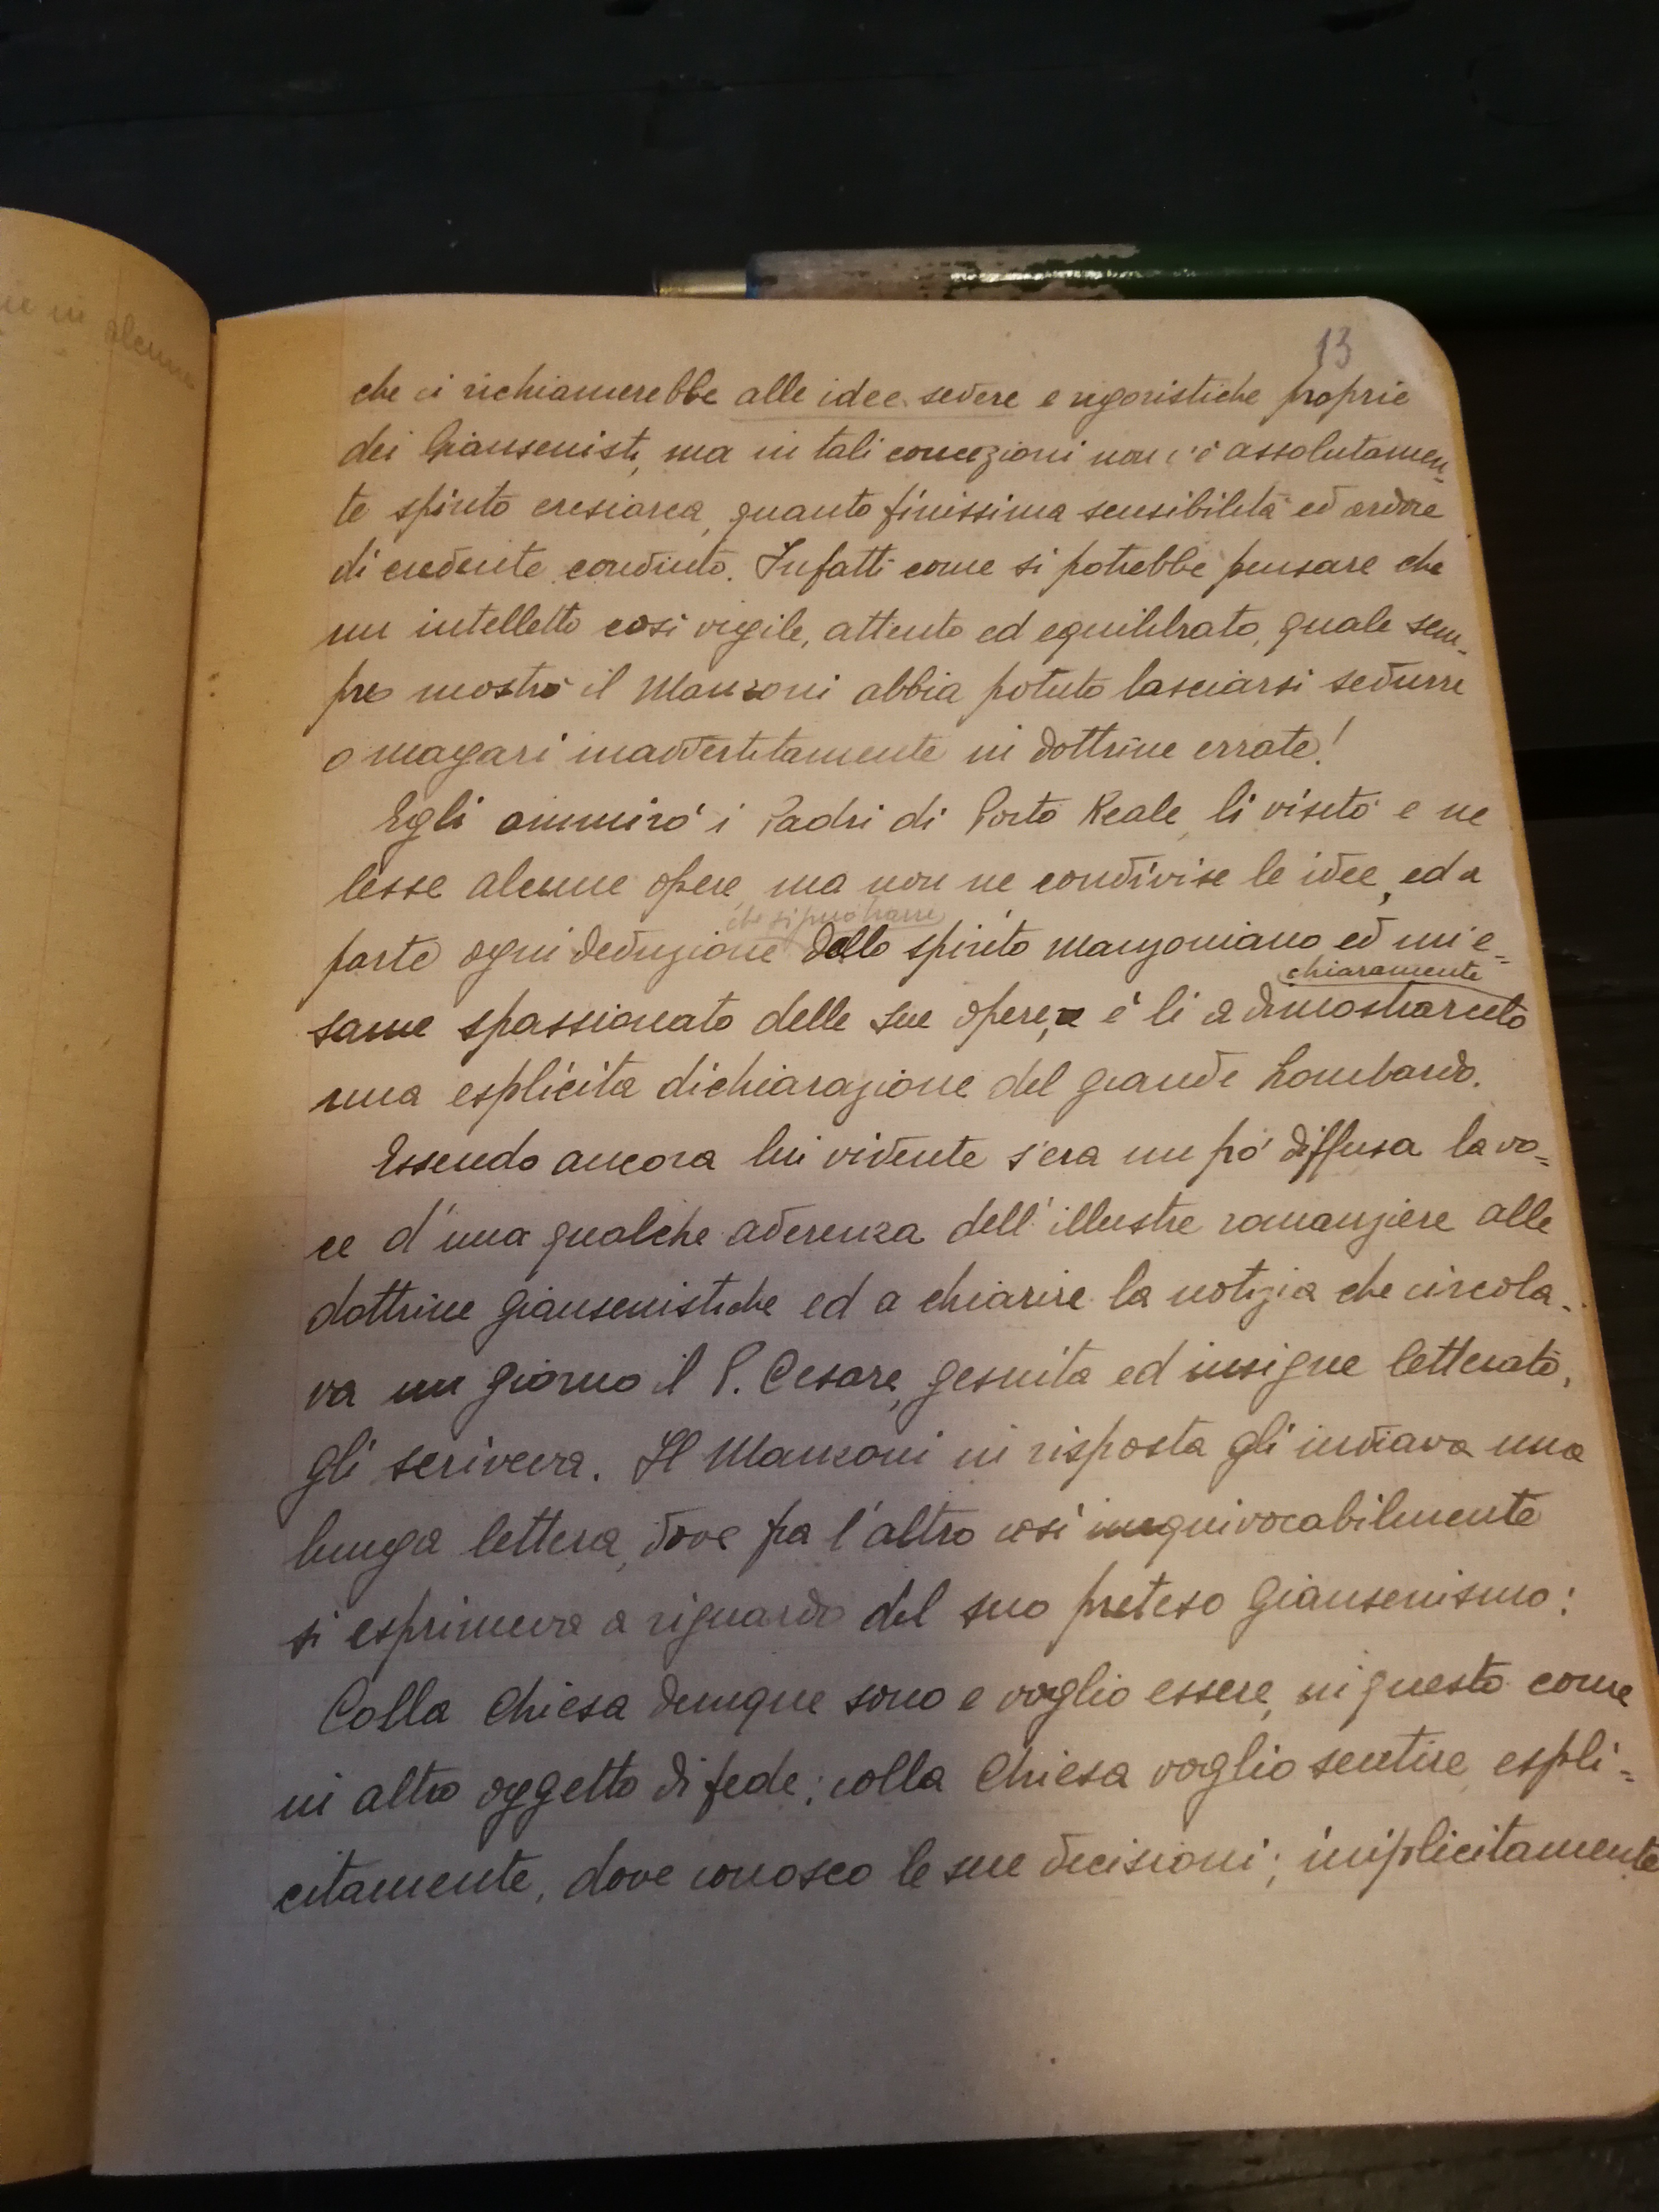 13
che ci richiamerebbe alle idee severe e rigoristiche proprie
dei Giansenisti, ma in tali concezioni non c'è assolutamen-
te spirito eresiarca, quanto finissima sensibilità ed ardore
di credente convinto. Infatti come si potrebbe pensare che
un intelletto così vigile, attento ed equilibrato, quale sem-
pre mostrò il Manzoni abbia potuto lasciarsi sedurre
o magari inavvertitamente in dottrine errate!
Egli ammirò i Padri di Porto Reale, li visitò e ne
lesse alcune opere, ma non ne condivise le idee, ed a
che si può trarre
parte ogni deduzione dello spirito manzoniano ed un e=
chiaramente
same spassionato delle sue opere, è lì a dimostrarcelo
una esplicita dichiarazione del grande Lombardo.
Essendo ancora lui vivente s'era un pó diffusa la vo=
ce d'una qualche aderenza dell'illustre romanziere alle
dottrine giansenistiche ed a chiarire la notizia che circola-
va un giorno il P. Cesare, gesuita ed insigne letterato,
gli scriveva. Il Manzoni in risposta gli inviava una
lunga lettera, dove fra l'altro così inequivocabilmente
si esprimeva a riguardo del suo preteso Giansenismo:
Colla Chiesa dunque sono e voglio essere, in questo come
in altro oggetto di fede; colla Chiesa voglio sentire, espli=
citamente, dove conosco le sue decisioni; implicitamente